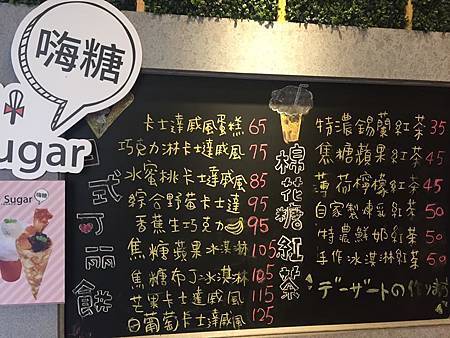 嗨糖
Sugar
Sugar 嗨糖
日式可麗餅
卡士達戚風蛋糕 65
巧克力淋卡士達戚風 75
水蜜桃卡士達戚風 85
綜合野莓卡士達 95
香蕉生巧克力 95
焦糖蘋果冰淇淋 105
焦糖布丁冰淇淋 105
芒果卡士達戚風 115
白葡萄卡士達戚風 125
棉花糖紅茶
特濃錫蘭紅茶 35
焦糖蘋果紅茶 45
薄荷檸檬紅茶 45
自家製煉乳紅茶 50
特濃鮮奶紅茶 50
手作冰淇淋紅茶 50
デーザートの作り方